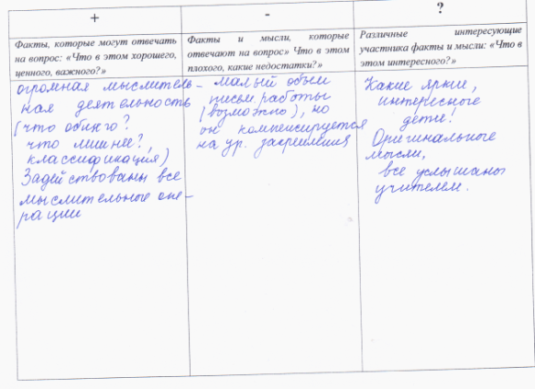 +
Факты, которые могут отвечать
на вопрос: «Что в этом хорошего,
ценного, важного?»
огромная мыслитель-
ная деятельность
(что общего?
что лишнее?,
классификация)
Задействованы все
мыслительные опе-
рации
-
Факты и мысли, которые
отвечают на вопрос» Что в этом
плохого, какие недостатки?»
- малый объём
письм. работы
(возможно), но
он компенсируется
на ур. закрепления
?
Различные интересующие
участника факты и мысли: «Что в
этом интересного?»
Какие яркие,
интересное
дети!
Оригинальные
мысли,
все услышаны
учителем.